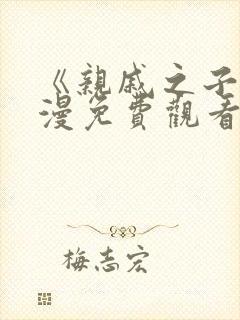 《親戚之子
漫免費觀看
梅志宏